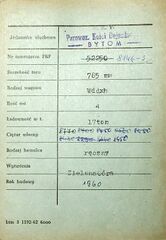 Jednostka służbowa Parowoz. Kolei Dojazdo.
BYTOM
Nr inwentarza PKP 52250 8146-S
Szerokość toru 785 mm
Rodzaj wagonu Wddxh
Ilość osi 4
Ładowność w t. 17ton
Ciężar własny
Rodzaj hamulca ręczny
Wytwórnia Zielona Góra
Rok budowy 1960